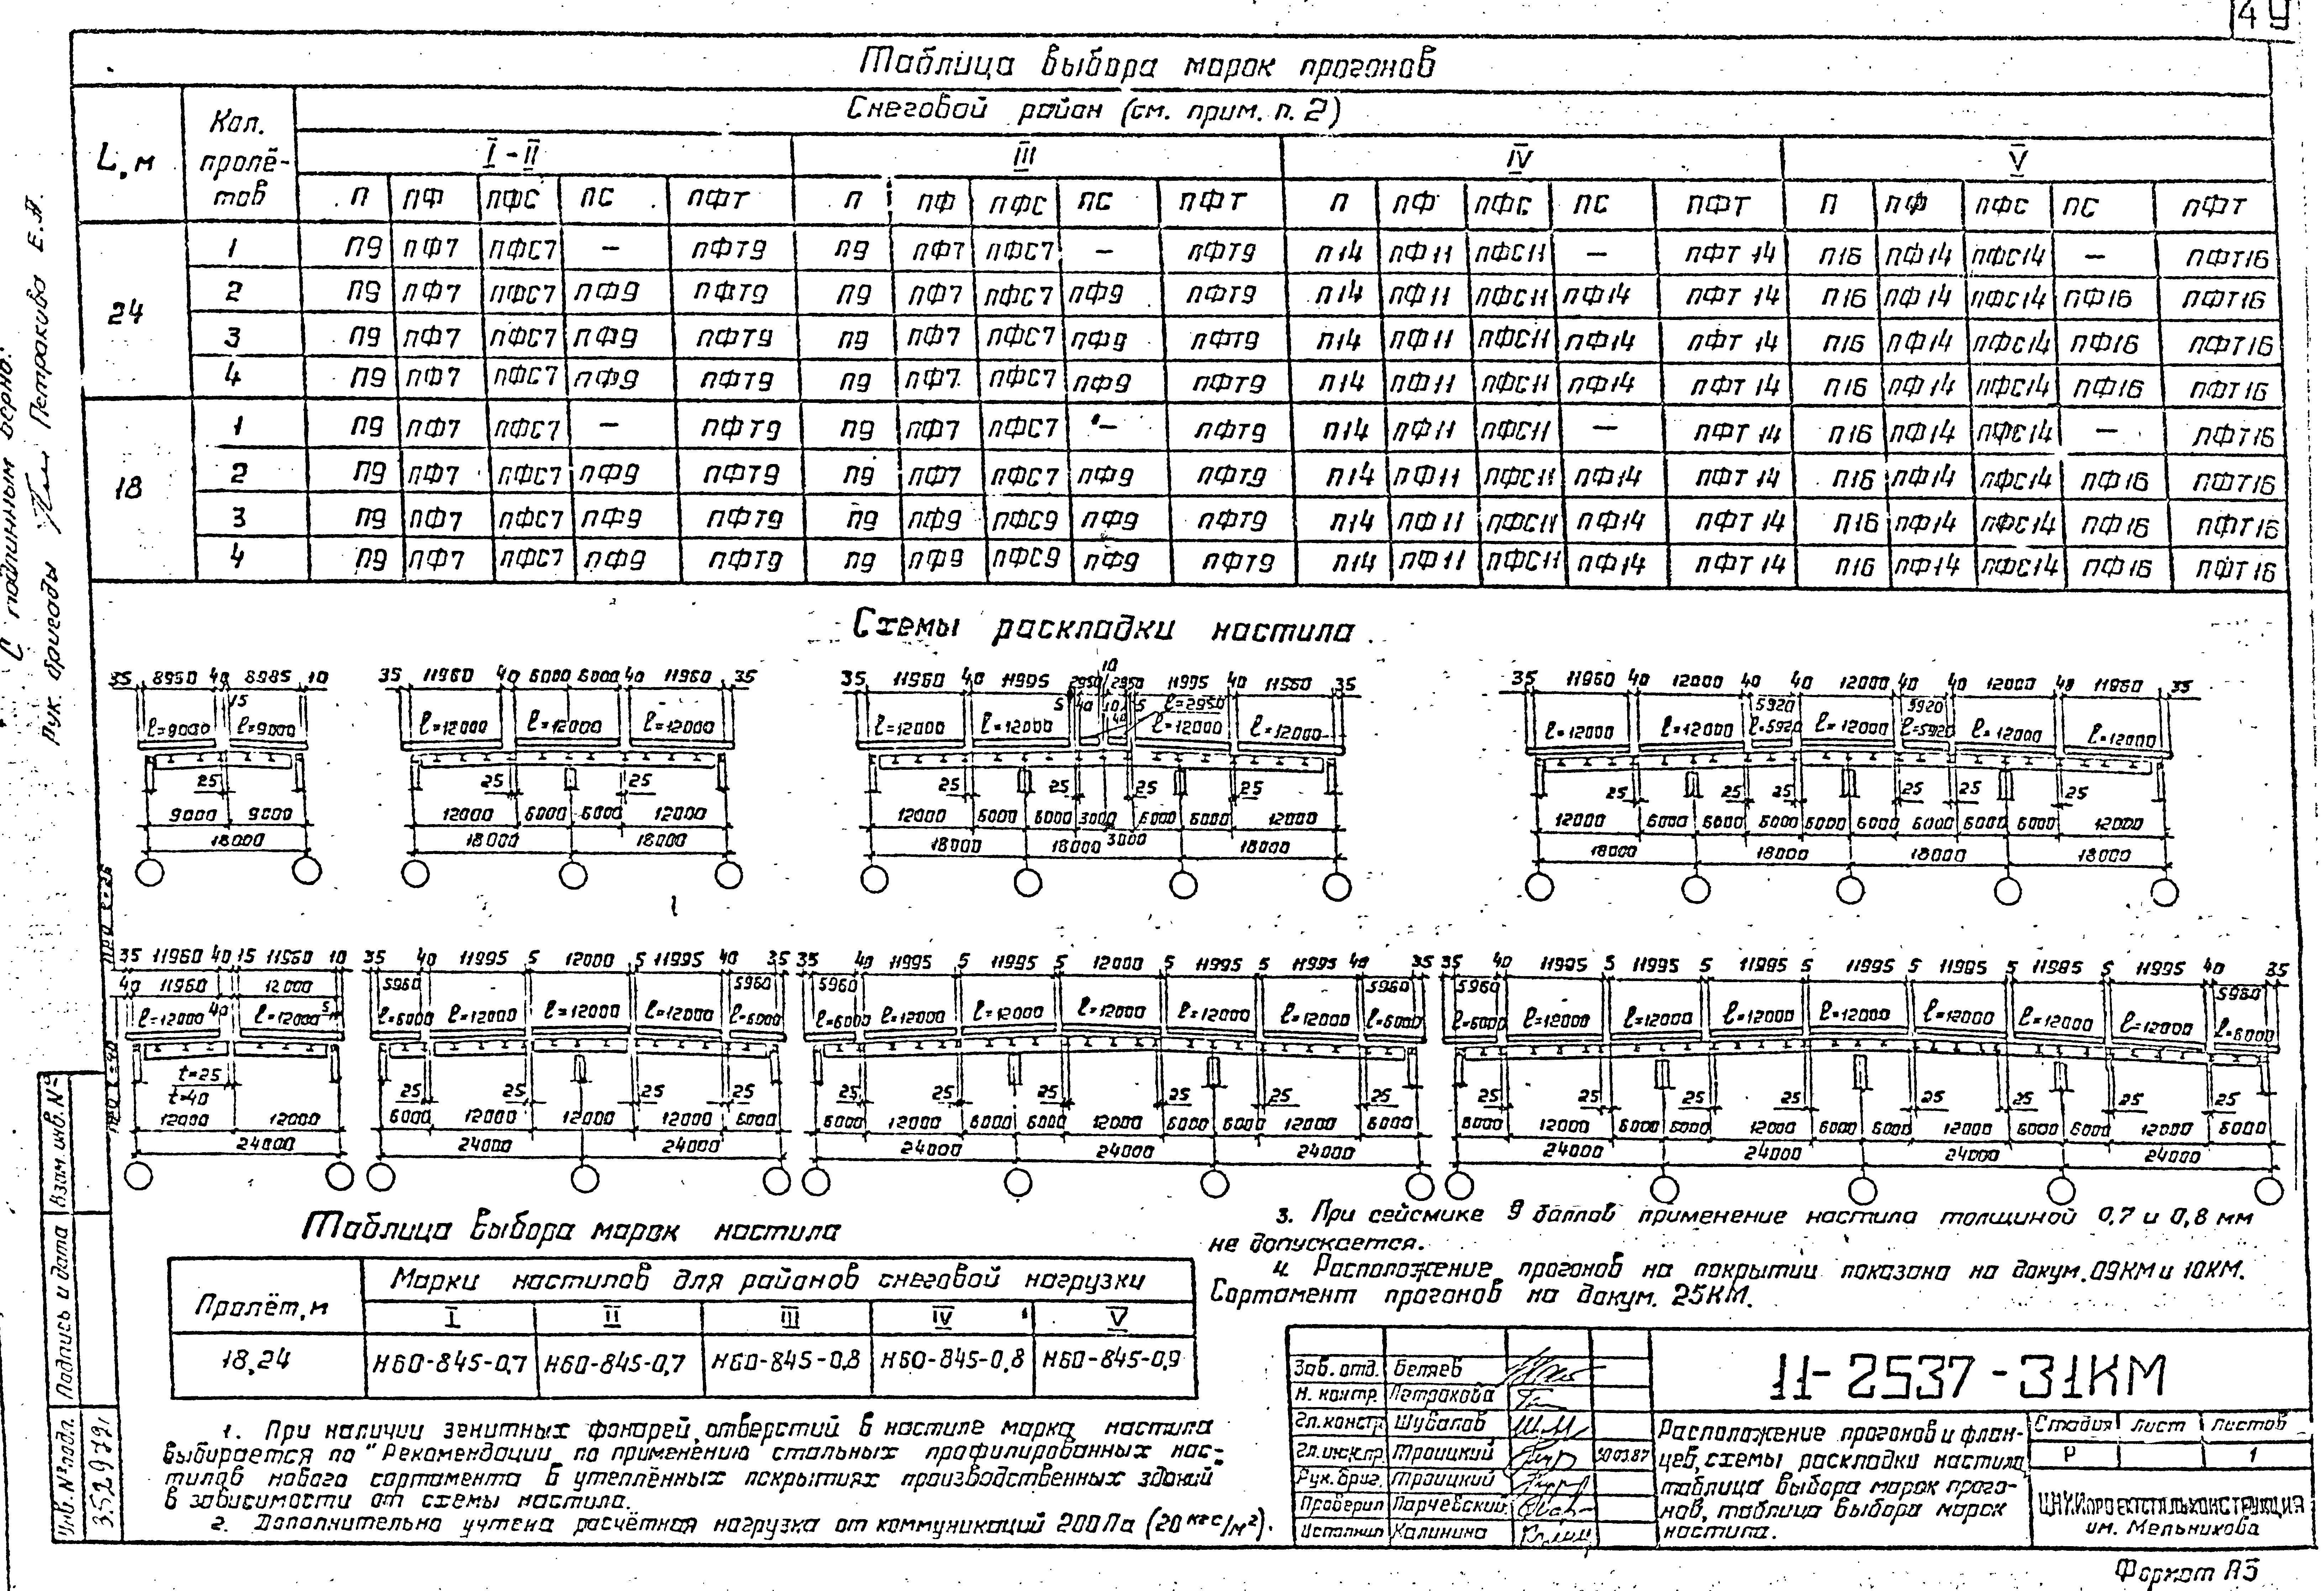 49
Таблица выбора марок прогонов
L, м | Кол. пролё-тов | Снеговой район (см. прим. п. 2)
I-II | III | IV | V
П | ПФ | ПФС | ПС | ПФТ | П | ПФ | ПФС | ПС | ПФТ | П | ПФ | ПФС | ПС | ПФТ | П | ПФ | ПФС | ПС | ПФТ
24
1 | П9 | ПФ7 | ПФС7 | — | ПФТ9 | П9 | ПФ7 | ПФС7 | — | ПФТ9 | П14 | ПФ11 | ПФС11 | — | ПФТ 14 | П16 | ПФ14 | ПФС14 | — | ПФТ16
2 | П9 | ПФ7 | ПФС7 | ПФ9 | ПФТ9 | П9 | ПФ7 | ПФС7 | ПФ9 | ПФТ9 | П14 | ПФ11 | ПФС11 | ПФ14 | ПФТ 14 | П16 | ПФ14 | ПФС14 | ПФ16 | ПФТ16
3 | П9 | ПФ7 | ПФС7 | ПФ9 | ПФТ9 | П9 | ПФ7 | ПФС7 | ПФ9 | ПФТ9 | П14 | ПФ11 | ПФС11 | ПФ14 | ПФТ 14 | П16 | ПФ14 | ПФС14 | ПФ16 | ПФТ16
4 | П9 | ПФ7 | ПФС7 | ПФ9 | ПФТ9 | П9 | ПФ7 | ПФС7 | ПФ9 | ПФТ9 | П14 | ПФ11 | ПФС11 | ПФ14 | ПФТ 14 | П16 | ПФ14 | ПФС14 | ПФ16 | ПФТ16
18
1 | П9 | ПФ7 | ПФС7 | — | ПФТ9 | П9 | ПФ7 | ПФС7 | — | ПФТ9 | П14 | ПФ11 | ПФС11 | — | ПФТ 14 | П16 | ПФ14 | ПФС14 | — | ПФТ16
2 | П9 | ПФ7 | ПФС7 | ПФ9 | ПФТ9 | П9 | ПФ7 | ПФС7 | ПФ9 | ПФТ9 | П14 | ПФ11 | ПФС11 | ПФ14 | ПФТ 14 | П16 | ПФ14 | ПФС14 | ПФ16 | ПФТ16
3 | П9 | ПФ7 | ПФС7 | ПФ9 | ПФТ9 | П9 | ПФ9 | ПФС9 | ПФ9 | ПФТ9 | П14 | ПФ11 | ПФС11 | ПФ14 | ПФТ 14 | П16 | ПФ14 | ПФС14 | ПФ16 | ПФТ16
4 | П9 | ПФ7 | ПФС7 | ПФ9 | ПФТ9 | П9 | ПФ9 | ПФС9 | ПФ9 | ПФТ9 | П14 | ПФ11 | ПФС11 | ПФ14 | ПФТ 14 | П16 | ПФ14 | ПФС14 | ПФ16 | ПФТ16
Схемы раскладки настила
35 8950 40 8985 10
15
ℓ=9000 ℓ=9000
25
9000 9000
18000
35 11960 40 6000 6000 40 11960 35
ℓ=12000 ℓ=12000 ℓ=12000
25 25
12000 6000 6000 12000
18000 18000
10
35 11960 40 11995 2950 2950 11995 40 11960 35
5 40 10 5
40
ℓ=2950
ℓ=12000 ℓ=12000 ℓ=12000 ℓ=12000
25 25 25 25
12000 6000 6000 3000 6000 6000 12000
18000 18000 3000 18000
35 11960 40 12000 40 40 12000 40 40 12000 40 11960 35
5920 5920
ℓ=12000 ℓ=12000 ℓ=5920 ℓ=12000 ℓ=5920 ℓ=12000 ℓ=12000
25 25 25 25 25 25
12000 6000 6000 6000 6000 6000 6000 6000 6000 12000
18000 18000 18000 18000
при t=25
35 11960 40 15 11960 10
при t=40
40 11960 12000
40 5
ℓ=12000 ℓ=12000
t=25
t=40
12000 12000
24000
35 40 11995 5 12000 5 11995 40 35
5960 5960
ℓ=6000 ℓ=12000 ℓ=12000 ℓ=12000 ℓ=6000
25 25 25 25
6000 12000 12000 12000 6000
24000 24000
35 40 11995 5 11995 5 12000 5 11995 5 11995 40 35
5960 5960
ℓ=6000 ℓ=12000 ℓ=12000 ℓ=12000 ℓ=12000 ℓ=12000 ℓ=6000
25 25 25 25 25 25
6000 12000 6000 6000 12000 6000 6000 12000 6000
24000 24000 24000
35 40 11995 5 11995 5 11995 5 11995 5 11995 5 11995 5 11995 40 35
5960 5960
ℓ=6000 ℓ=12000 ℓ=12000 ℓ=12000 ℓ=12000 ℓ=12000 ℓ=12000 ℓ=12000 ℓ=6000
25 25 25 25 25 25 25 25
6000 12000 6000 6000 12000 6000 6000 12000 6000 6000 12000 6000
24000 24000 24000 24000
Таблица выбора марок настила
Пролёт, м | Марки настилов для районов снеговой нагрузки
I | II | III | IV | V
18, 24 | Н60-845-0,7 | Н60-845-0,7 | Н60-845-0,8 | Н60-845-0,8 | Н60-845-0,9
1. При наличии зенитных фонарей, отверстий в настиле марка настила
выбирается по "Рекомендации по применению стальных профилированных нас-
тилов нового сортамента в утеплённых покрытиях производственных зданий
в зависимости от схемы настила.
2. Дополнительно учтена расчётная нагрузка от коммуникаций 200 Па (20 кгс/м²).
3. При сейсмике 9 баллов применение настила толщиной 0,7 и 0,8 мм
не допускается.
4. Расположение прогонов на покрытии показано на докум. 09КМ и 10КМ.
Сортамент прогонов на докум. 25КМ.
Зав. отд. Беляев
Н. контр. Петракова
Гл. констр Шувалов
Гл. инж. пр. Троицкий 30.03.87
Рук. бриг. Троицкий
Проверил Парчевский
Исполнил Калинина
11-2537-31КМ
Расположение прогонов и флан-
цев, схемы раскладки настила,
таблица выбора марок прого-
нов, таблица выбора марок
настила.
Стадия Лист Листов
Р 1
ЦНИИпроектстальконструкция
им. Мельникова
Формат А3
С подлинным верно:
Рук. бригады Петракова Е.А.
Взам. инв. №
Подпись и дата
Инв. № подл.